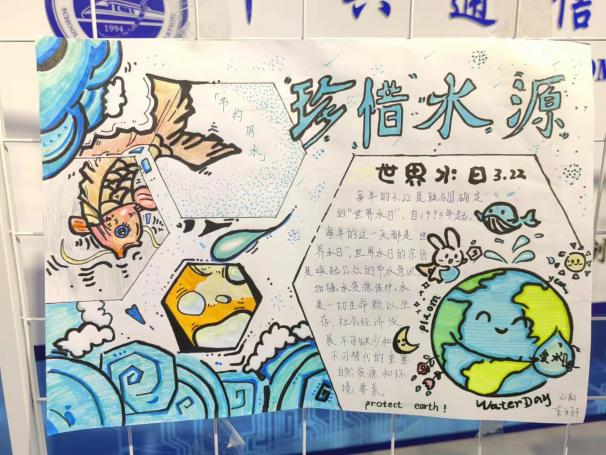 1994
通信
珍惜水源
「节约用水」
世界水日3.22
每年的3.22是联合国确定
的"世界水日",自1993年起,
每年的这一天都是"世
界水日"。世界水日的宗旨
是唤起公众的节水意识,
加强水资源保护。水
是一切生命赖以生
存,社会经济发
展不可缺少和
不可替代的重要
自然资源和环
境要素。
爱水
protect earth!
Water DAY